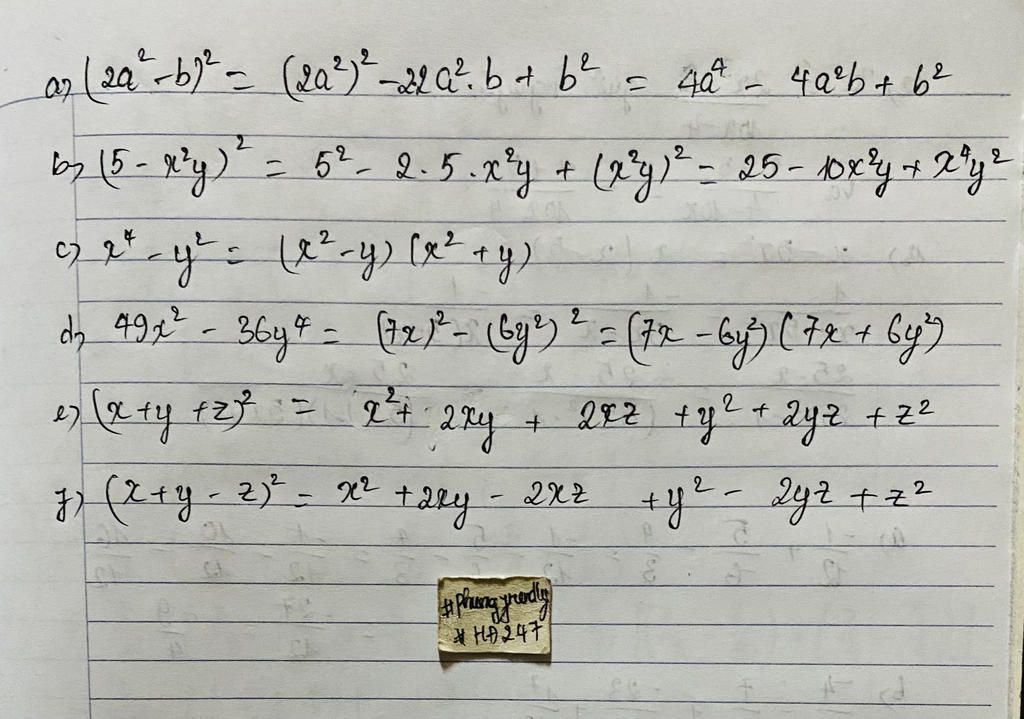 a) (2a² - b)² = (2a²)² - 2.2a².b + b² = 4a⁴ - 4a²b + b²
b) (5 - x²y)² = 5² - 2.5.x²y + (x²y)² = 25 - 10x²y + x⁴y²
c) x⁴ - y² = (x² - y)(x² + y)
d) 49x² - 36y⁴ = (7x)² - (6y²)² = (7x - 6y²)(7x + 6y²)
e) (x + y + z)² = x² + 2xy + 2xz + y² + 2yz + z²
f) (x + y - z)² = x² + 2xy - 2xz + y² - 2yz + z²
#Phungfriendly
# HĐ247